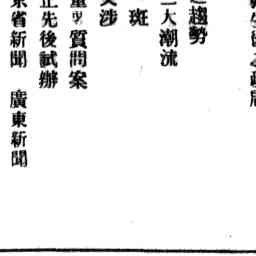 趨勢
二大潮流
斑
交涉
質問案
先後試辦
省新聞　廣東新聞